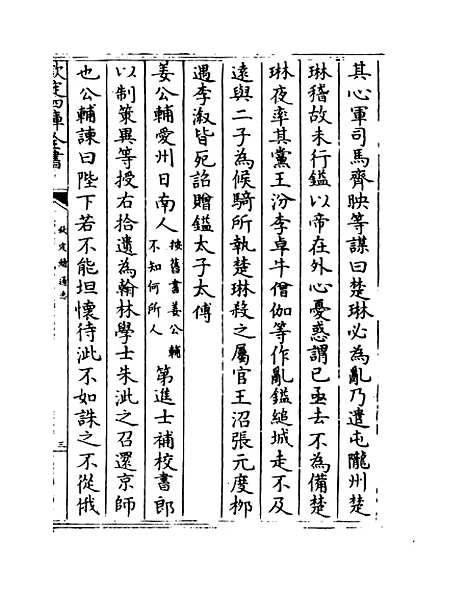 其心軍司馬齊映等謀曰楚琳必為亂乃遣屯隴州楚
琳稽故未行鎰以帝在外心憂惑謂已亟去不為備楚
琳夜率其黨王汾李卓牛僧伽等作亂鎰縋城走不及
遠與二子為候騎所執楚琳殺之屬官王沼張元度栁
遇李溆皆死詔贈鎰太子太傅
姜公輔愛州日南人按舊書姜公輔不知何所人第進士補校書郎
以制策異等授右拾遺為翰林學士朱泚之召還京師
也公輔諫曰陛下若不能坦懷待泚不如誅之不從俄
欽定四庫全書
欽定續通志
三